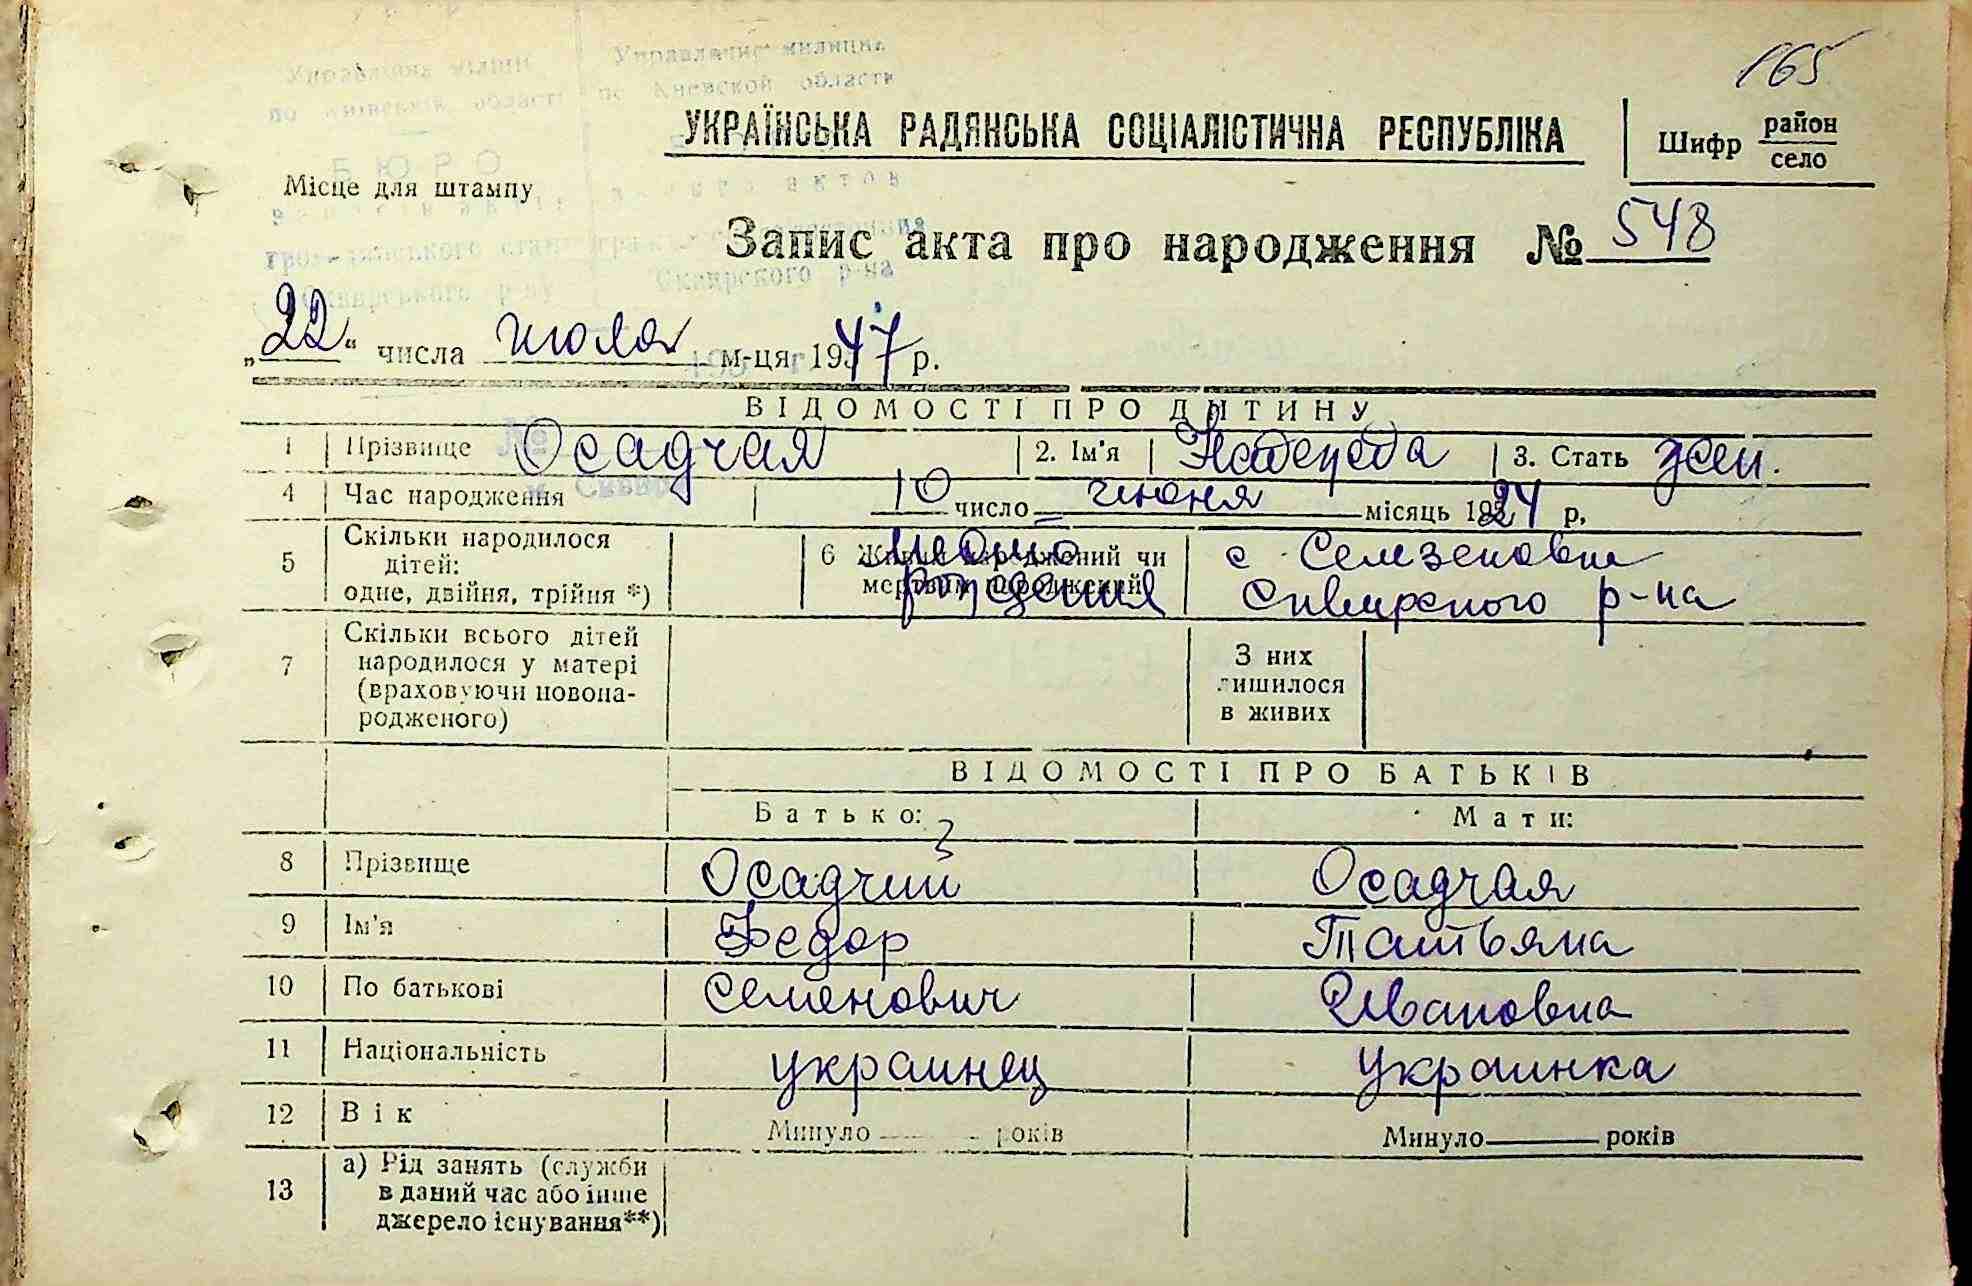 165
Управління міліції Управление милиции
по Київській області по Киевской области
УКРАЇНСЬКА РАДЯНСЬКА СОЦІАЛІСТИЧНА РЕСПУБЛІКА
Шифр район
село
БЮРО
Місце для штампу
Запис акта про народження № 548
Сквирського р-ну Сквирского р-на
„22“ числа июля м-ця 1947 р.
ВІДОМОСТІ ПРО ДИТИНУ
1 Прізвище Осадчая 2. Ім'я Надежда 3. Стать жен.
4 Час народження 10 число июня місяць 1924 р.
5 Скільки народилося
дітей:
одне, двійня, трійня *)
6 Живий народжений чи
мертвий народжений
место
рождения
с Селезеновки
Сквирского р-на
7 Скільки всього дітей
народилося у матері
(враховуючи новона-
родженого)
З них
лишилося
в живих
ВІДОМОСТІ ПРО БАТЬКІВ
Батько: Мати:
8 Прізвище Осадчий Осадчая
9 Ім'я Федор Татьяна
10 По батькові Семенович Ивановна
11 Національність украинец украинка
12 Вік Минуло років Минуло років
13 а) Рід занять (служби
в даний час або інше
джерело існування**)